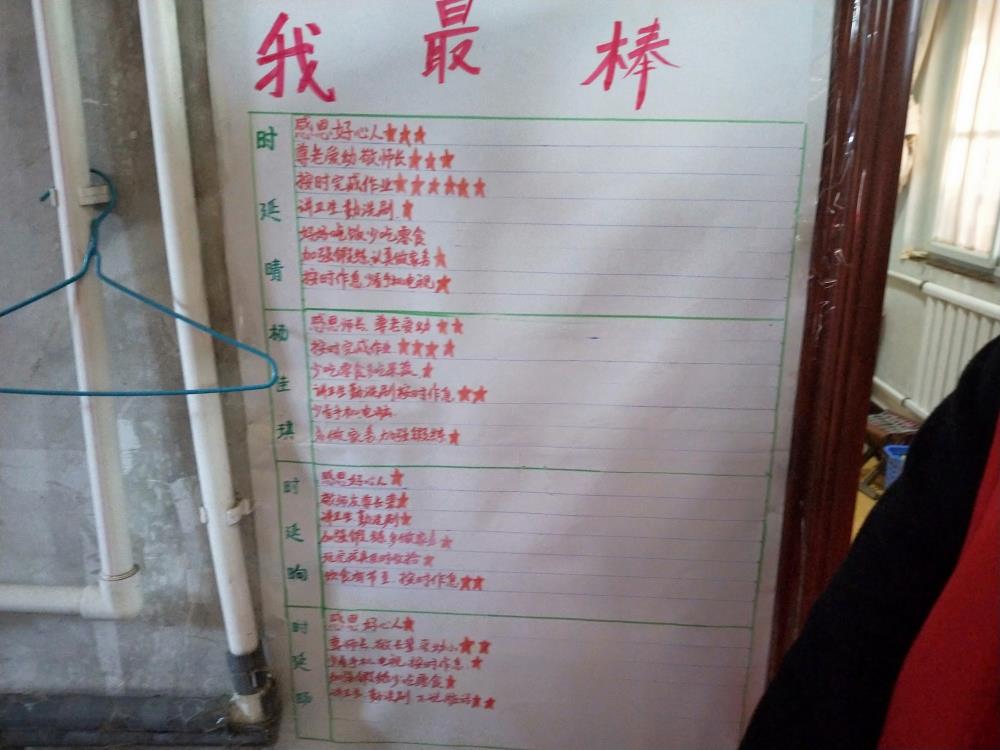 我最棒
时延晴
感恩好心人★★★
尊老爱幼敬师长★★★
按时完成作业★★★★★★
讲卫生勤洗刷.★
好好吃饭少吃零食
加强锻练认真做家务★
按时作息少看手机电视★
杨佳琪
感恩师长.尊老爱幼★★
按时完成作业.★★★★
少吃零食多吃果蔬.★
讲卫生勤洗刷按时作息★★
少看手机电脑.
多做家务加强锻练★
时延昫
感恩好心人★
敬师友尊长辈★
讲卫生勤洗刷★
加强锻练多做家务★
玩完玩具及时收拾★
饮食有节.按时作息★★
时延
感恩好心人★
尊师长.敬长辈.爱幼小★★
少看手机电视.按时作息.★
加强锻练少吃零食★
讲卫生.勤洗刷.★★